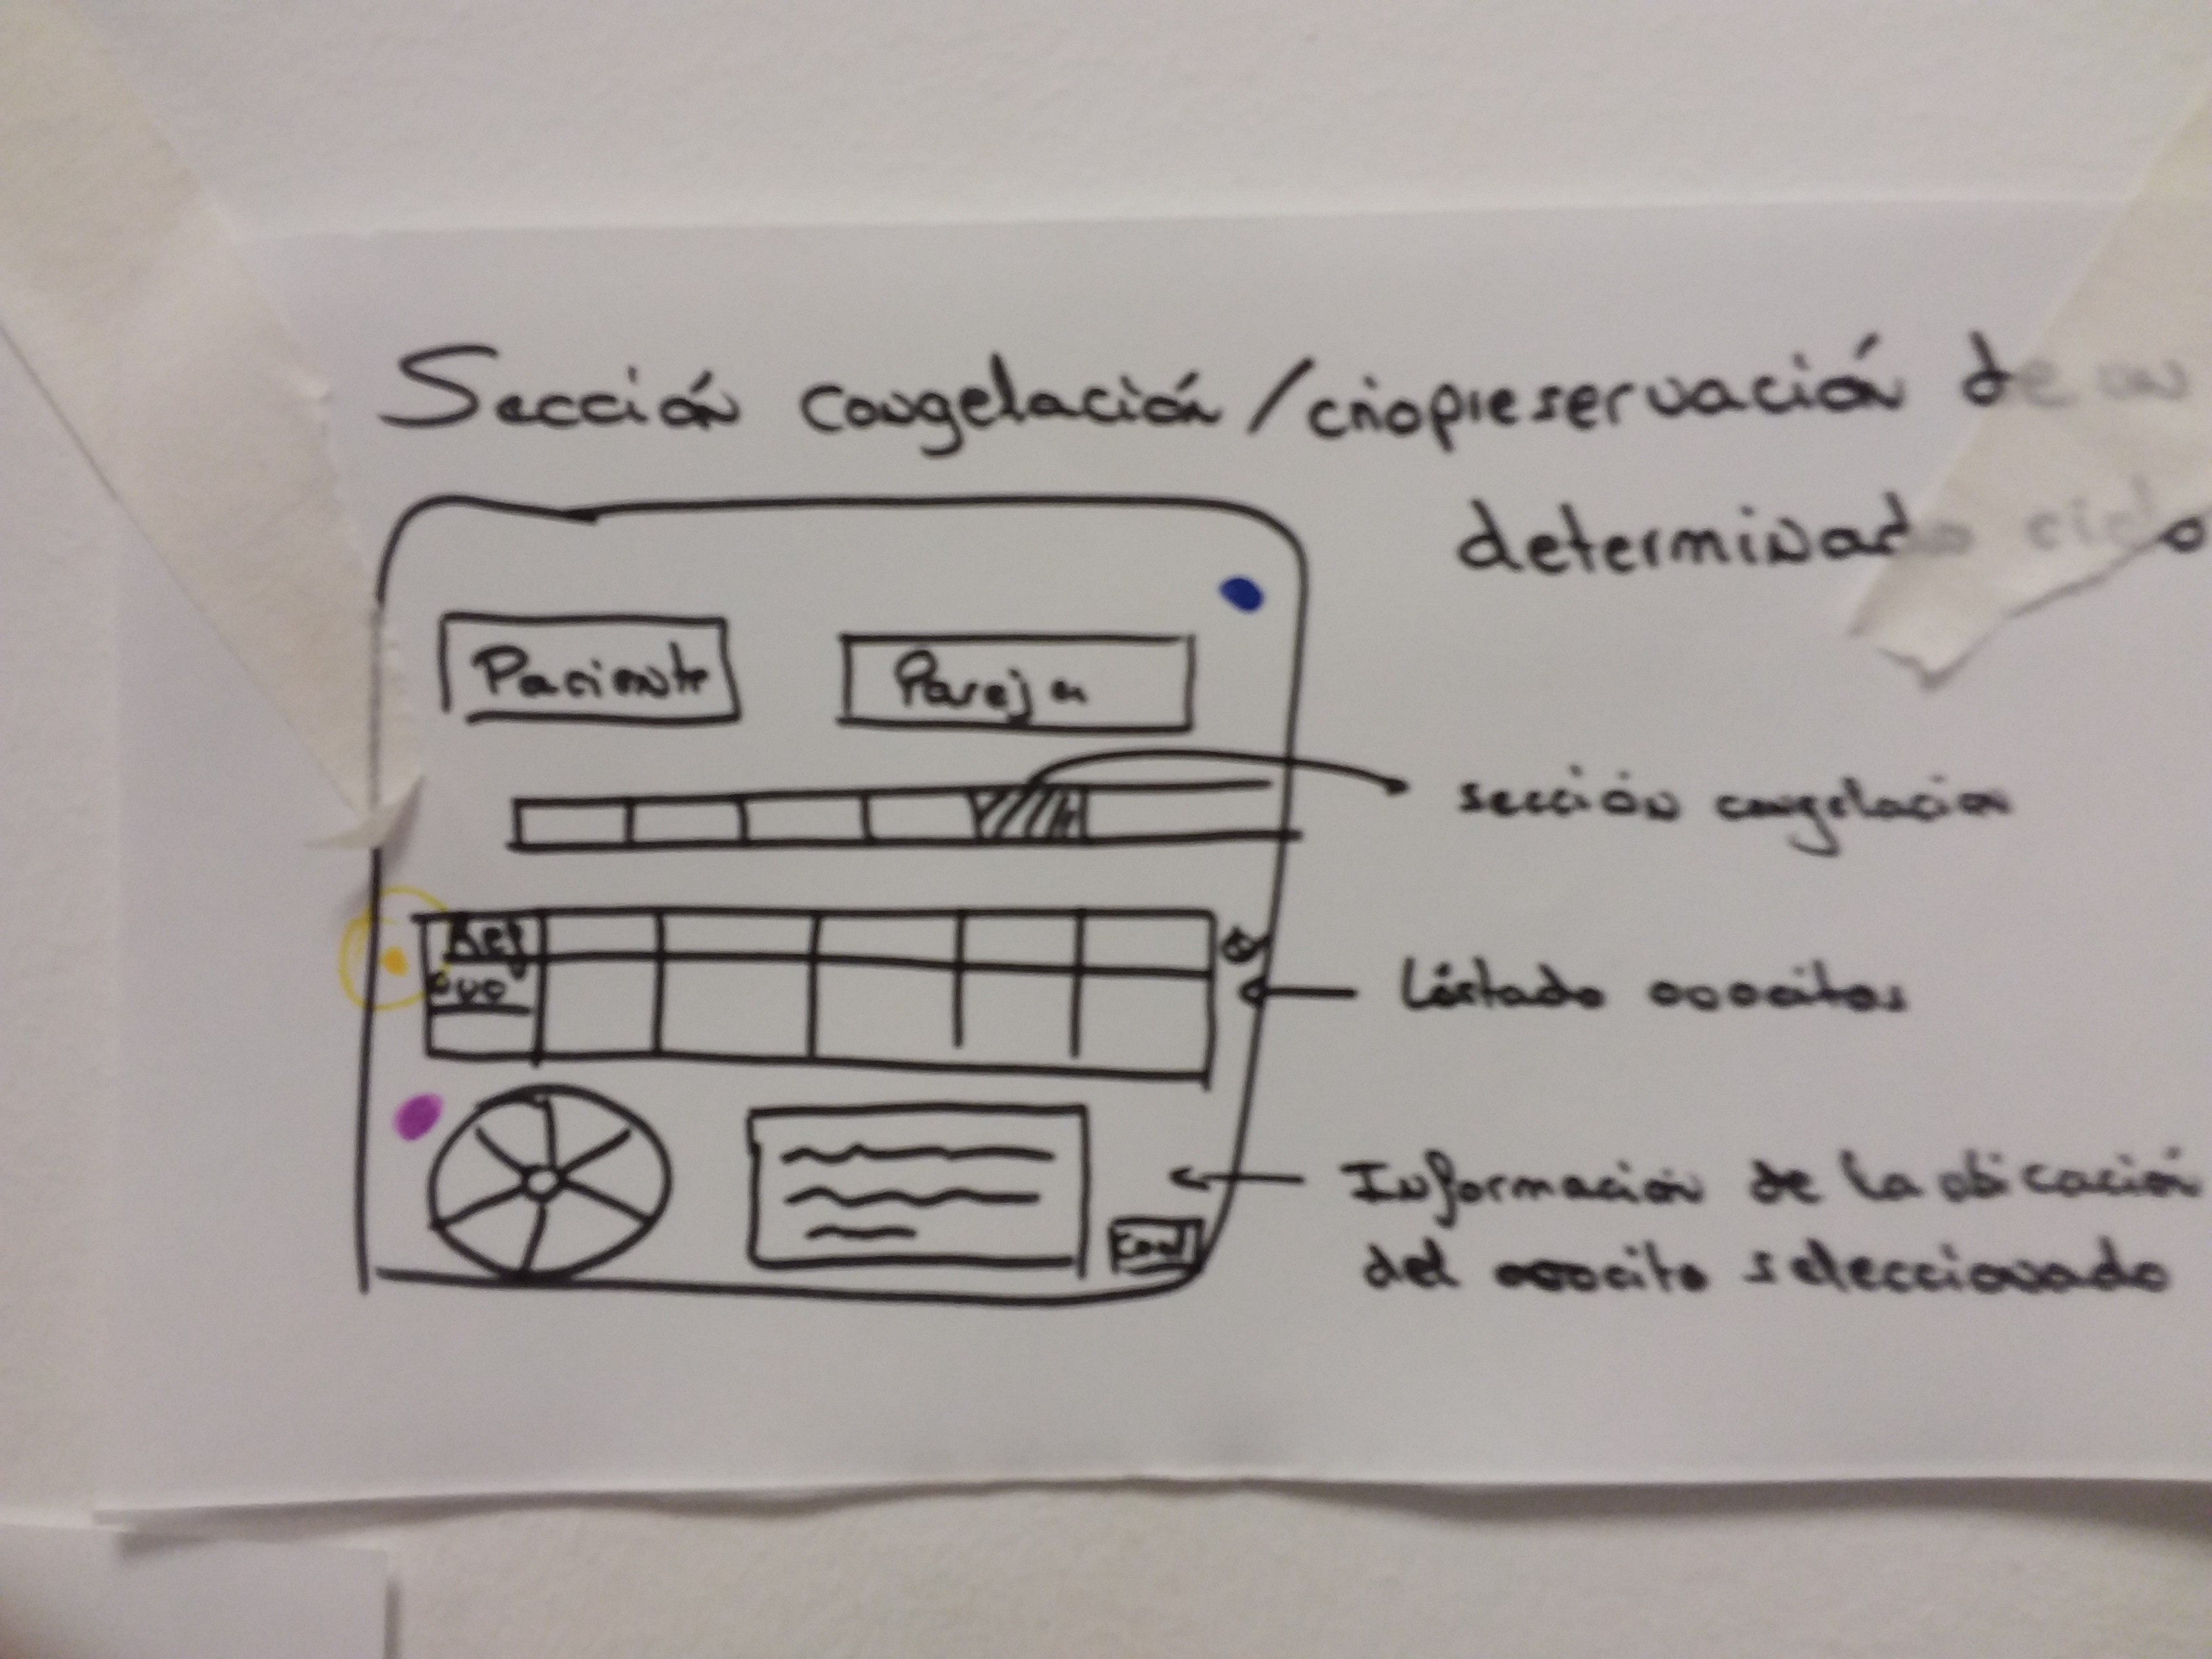 Sección congelación/criopreservación de un
determinado ciclo
Paciente
Pareja
sección congelacion
Ref
Ovo
Listado ovocitos
Información de la ubicación
del ovocito seleccionado